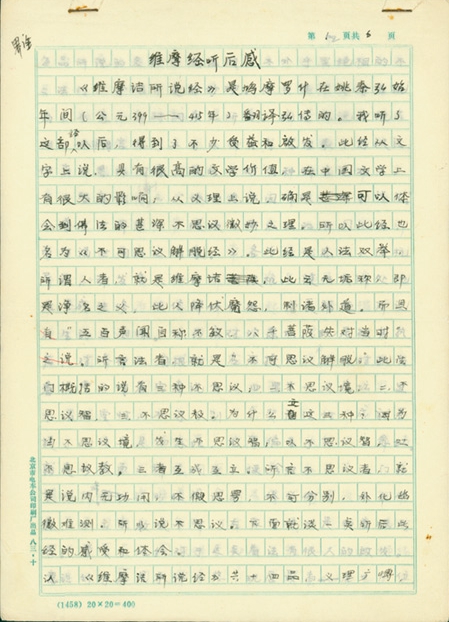 第 1 页共 6 页
维摩经听后感
《维摩诘所说经》是鸠摩罗什在姚秦弘始
年间(公元399——415年)翻译弘传的。我听了
这部经以后,得到了不少教益和启发。此经从文
字上说,具有很高的文学价值,在中国文学上
有很大的影响,从义理上说,确是可以体
会到佛法的甚深不思议微妙之理。所以此经也
名为《不可思议解脱经》。此经是人法双举
所谓人者,就是维摩诘,此云无垢称,即
是净名之义,此人降伏魔怨,制诸外道。而且
有"五百声闻自称不敏,八千菩萨失对当时"
之说。所言法者,就是不可思议解脱。此法
概括的说有三种不思议,一不思议境,二不
思议智,三不思议教。为什么立这三种,因为
由不思议境,发生不思议智,以不思议智,起
不思议教。三者互成互立。所言不思议者,就
是说内无功用,不假思虑,不可分别,外化幽
微难测,所以说不思议。下面就谈一点听后此
经的感受和体会。
《维摩诘所说经》共十四品,义理广博
北京市电车公司印刷厂出品 八三·十
(1458) 20×20=400